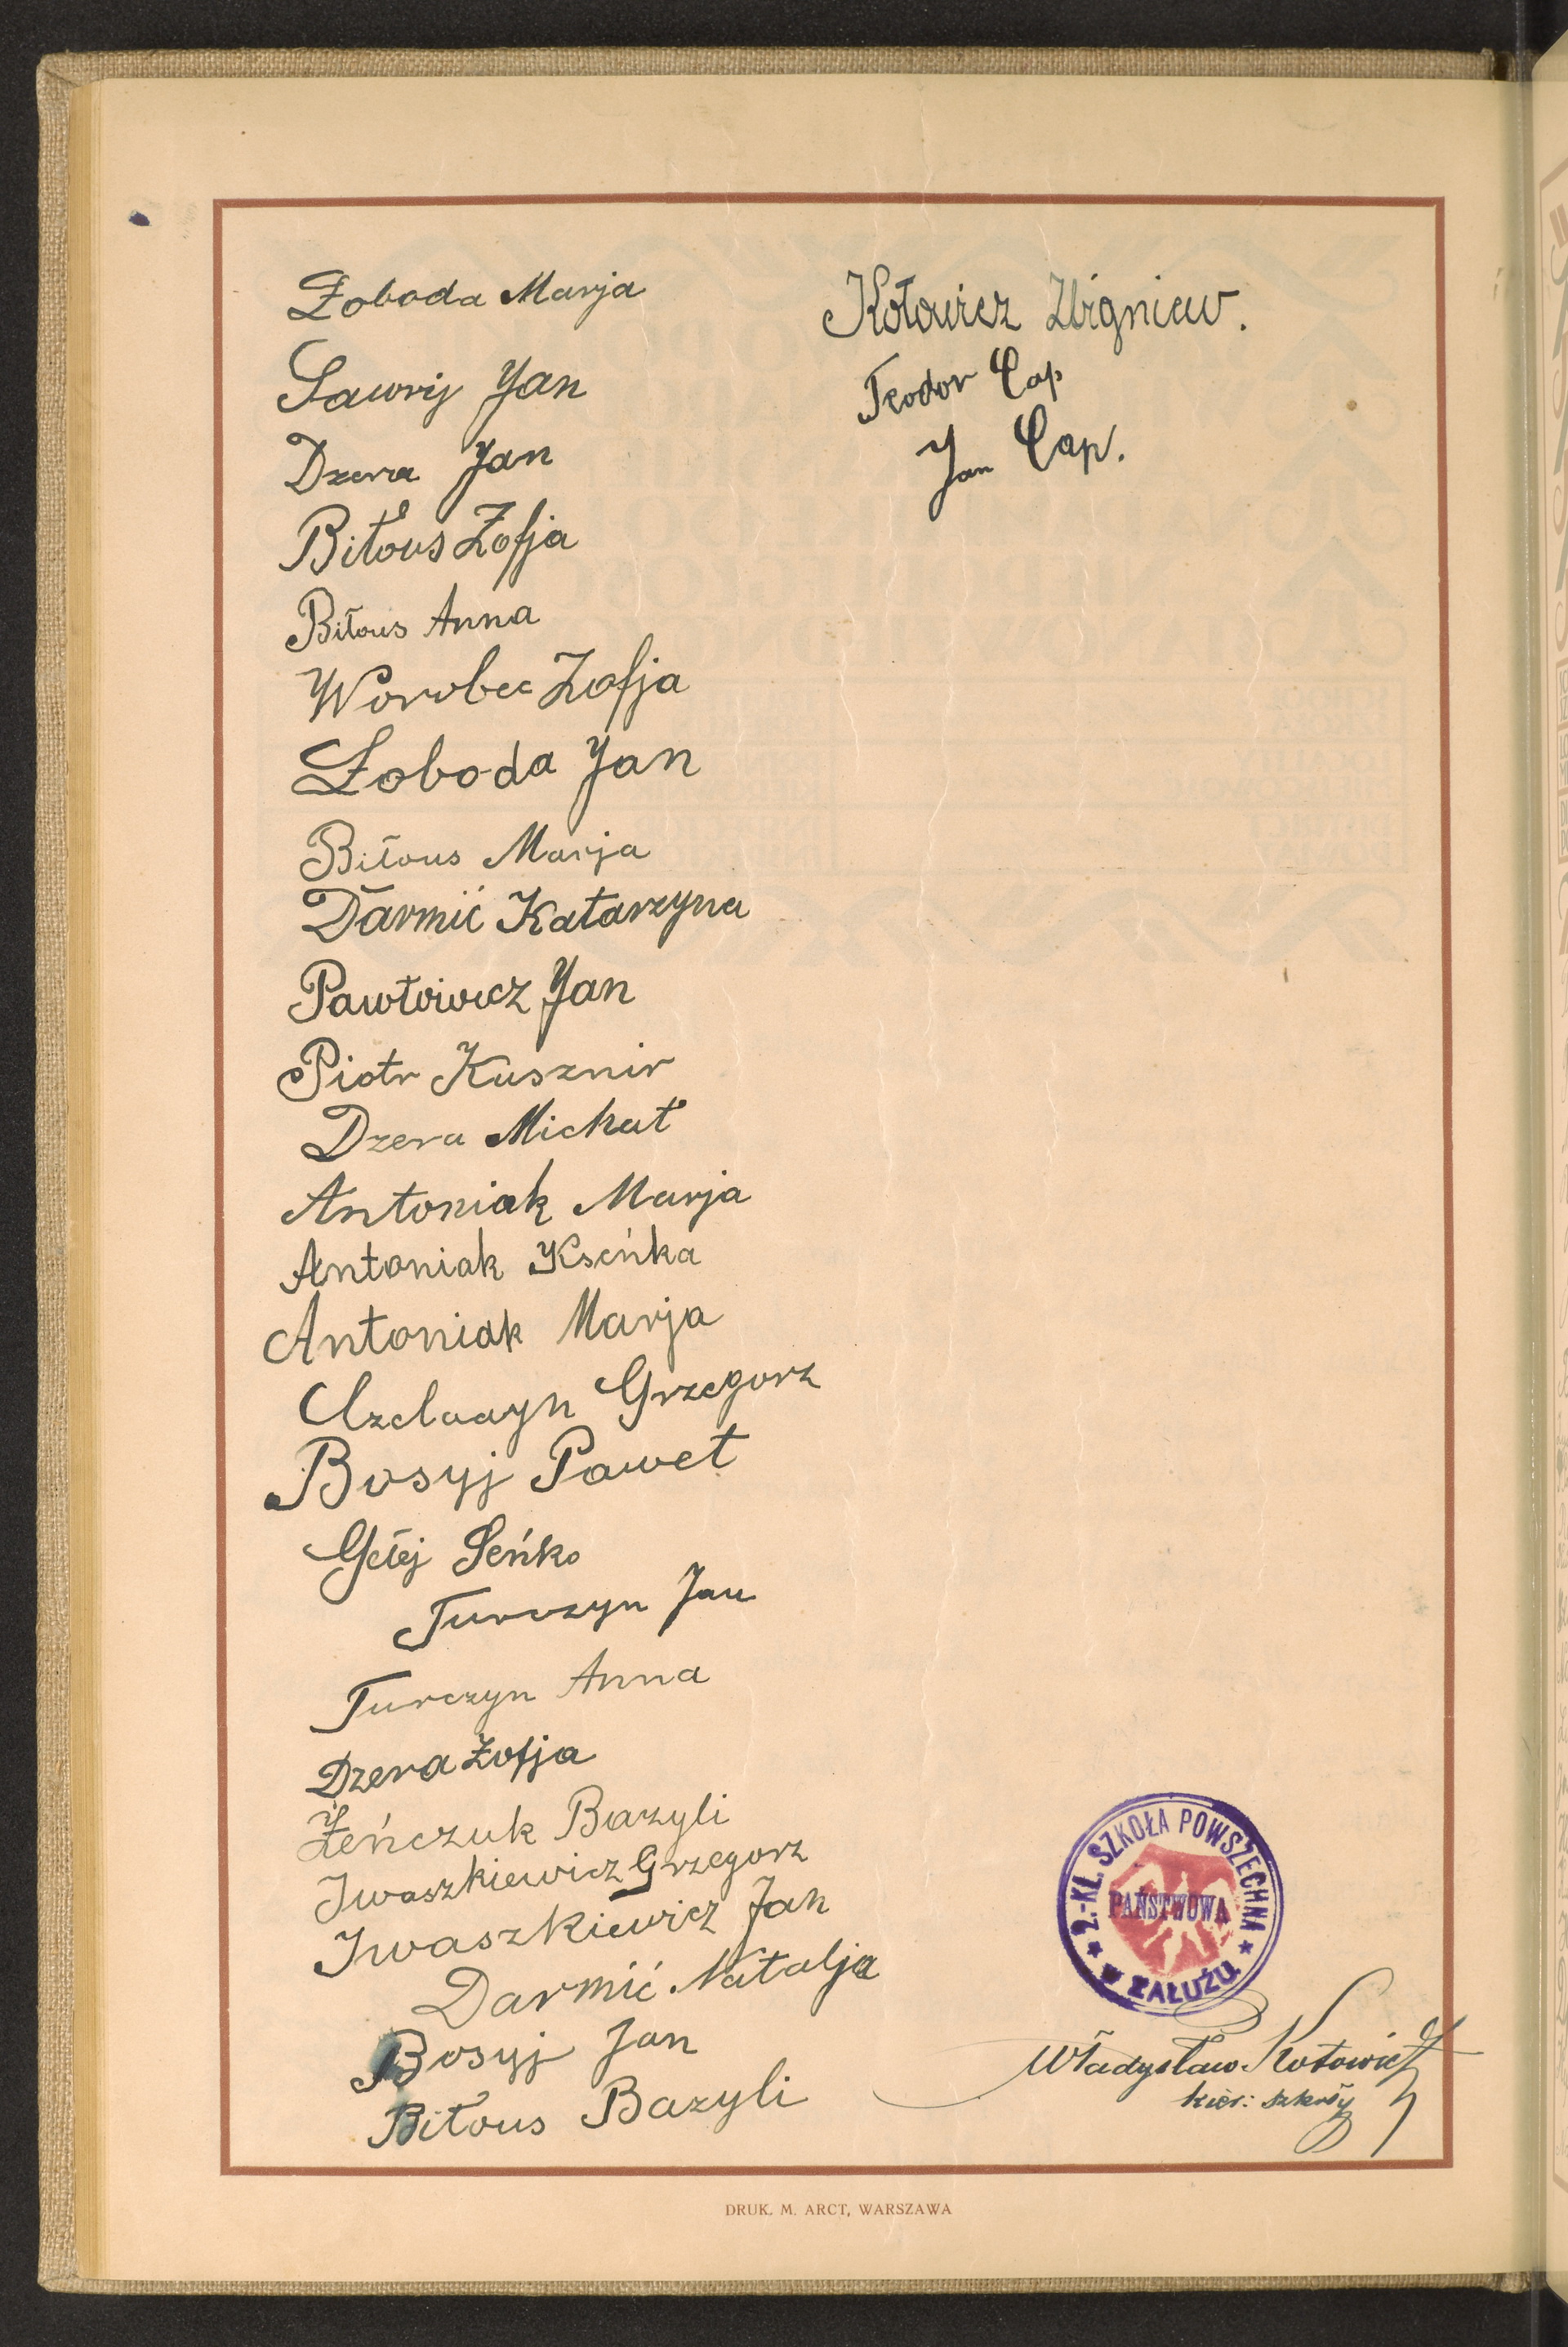 Łoboda Marja
Ławrij Jan
Dzera Jan
Biłous Zofja
Biłous Anna
Worobec Zofja
Łoboda Jan
Biłous Marja
Darmić Katarzyna
Pawłowicz Jan
Piotr Kusznir
Dzera Michał
Antoniak Marja
Antoniak Kseńka
Antoniak Marja
Grzegorz
Bosyj Paweł
Seńko
Turczyn Jan
Turczyn Anna
Dzera Zofja
Żeńczuk Bazyli
Iwaszkiewicz Grzegorz
Iwaszkiewicz Jan
Darmić Natalja
Bosyj Jan
Biłous Bazyli
Kotowicz Zbigniew.
Teodor Cap
Jan Cap.
2-KL. SZKOŁA POWSZECHNA
PAŃSTWOWA
W ZAŁUŻU
Władysław Kotowicz
kier: szkoły
DRUK. M. ARCT, WARSZAWA